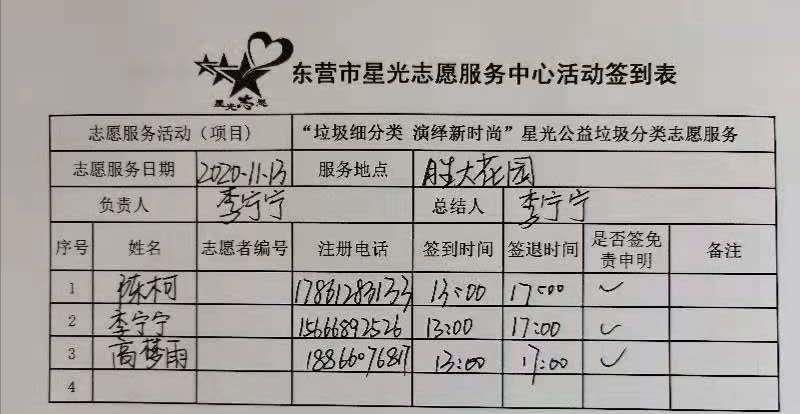 星光志愿
东营市星光志愿服务中心活动签到表
志愿服务活动（项目） “垃圾细分类 演绎新时尚”星光公益垃圾分类志愿服务
志愿服务日期 2020-11-13 服务地点 胜大花园
负责人 李宁宁 总结人 李宁宁
序号 姓名 志愿者编号 注册电话 签到时间 签退时间 是否签免责申明 备注
1 陈柯 17861283133 13:00 17:00 ✓
2 李宁宁 15666892526 13:00 17:00 ✓
3 高梦雨 18866076817 13:00 17:00 ✓
4